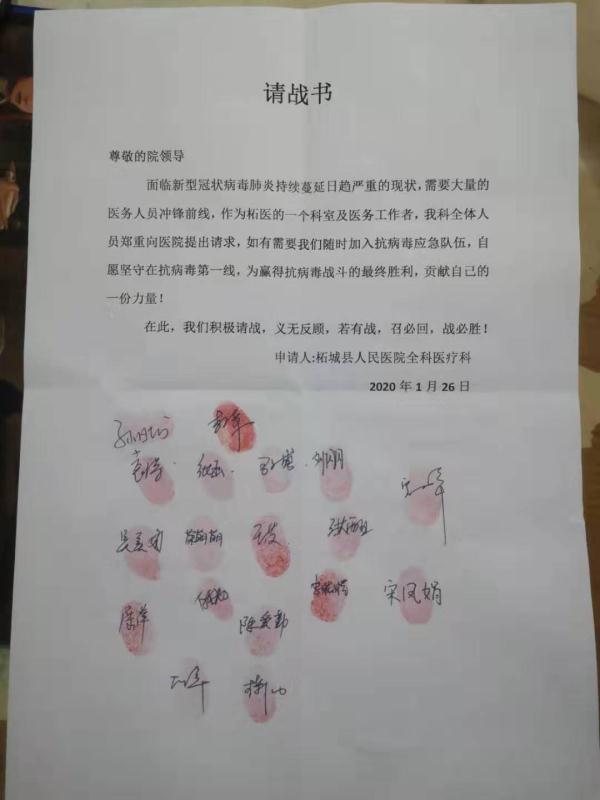 请战书
尊敬的院领导
面临新型冠状病毒肺炎持续蔓延日趋严重的现状，需要大量的
医务人员冲锋前线，作为柘医的一个科室及医务工作者，我科全体人
员郑重向医院提出请求，如有需要我们随时加入抗病毒应急队伍，自
愿坚守在抗病毒第一线，为赢得抗病毒战斗的最终胜利，贡献自己的
一份力量！
在此，我们积极请战，义无反顾，若有战，召必回，战必胜！
申请人:柘城县人民医院全科医疗科
2020 年 1 月 26 日
刘朋
宋凤娟
陈爱勤